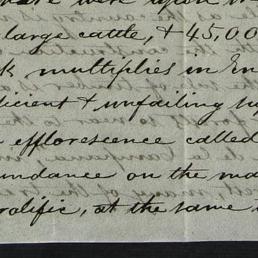 were upon
large cattle, & 45,00
multiplies in En
icient & unfailing
efflorescence called
undance on the ma
rolific, at the same